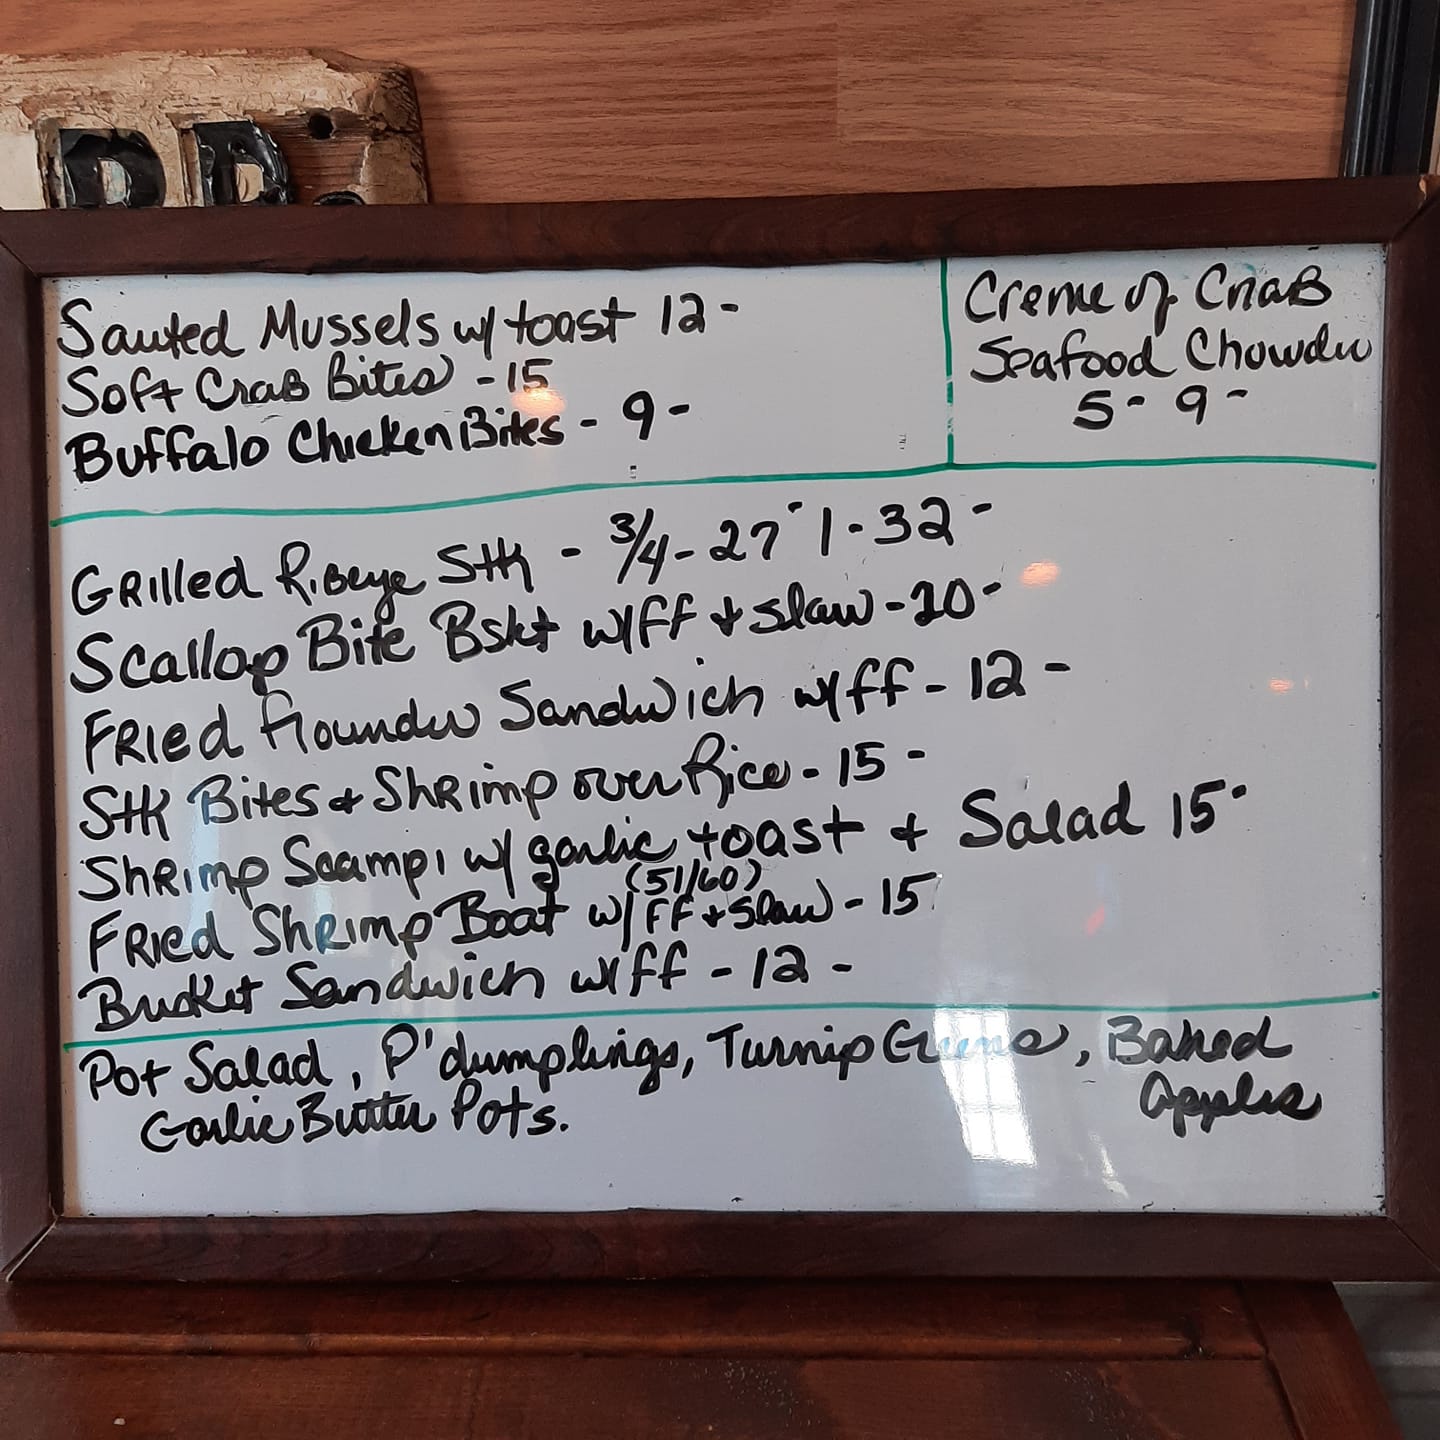 DD
Sauted Mussels w/ toast 12-
Soft Crab Bites -15
Buffalo Chicken Bites - 9-
Creme of Crab
Seafood Chowder
5- 9-
Grilled Ribeye Stk - 3/4-27- 1-32-
Scallop Bite Bskt w/ff + slaw-20-
Fried Flounder Sandwich w/ff-12-
Stk Bites & Shrimp over Rice-15-
Shrimp Scampi w/ garlic toast + Salad 15-
(51/60)
Fried Shrimp Boat w/ FF + Slaw-15
Sandwich w/ff-12-
Pot Salad, P'dumplings, Turnip Greens, Baked
Apples
Garlic Butter Pots.